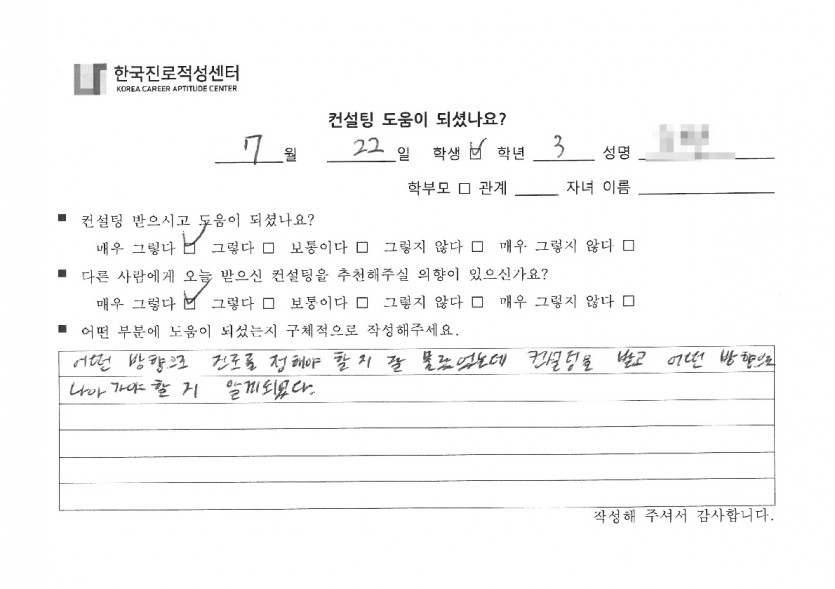 한국진로적성센터
KOREA CAREER APTITUDE CENTER
컨설팅 도움이 되셨나요?
7 월 22 일 학생 ☑ 학년 3 성명
학부모 □ 관계 자녀 이름
■ 컨설팅 받으시고 도움이 되셨나요?
매우 그렇다 ☑ 그렇다 □ 보통이다 □ 그렇지 않다 □ 매우 그렇지 않다 □
■ 다른 사람에게 오늘 받으신 컨설팅을 추천해주실 의향이 있으신가요?
매우 그렇다 ☑ 그렇다 □ 보통이다 □ 그렇지 않다 □ 매우 그렇지 않다 □
■ 어떤 부분에 도움이 되셨는지 구체적으로 작성해주세요.
어떤 방향으로 진로를 정해야 할 지 잘 몰랐었는데 컨설팅을 받고 어떤 방향으로
나아가야 할 지 알게되었다.
작성해 주셔서 감사합니다.